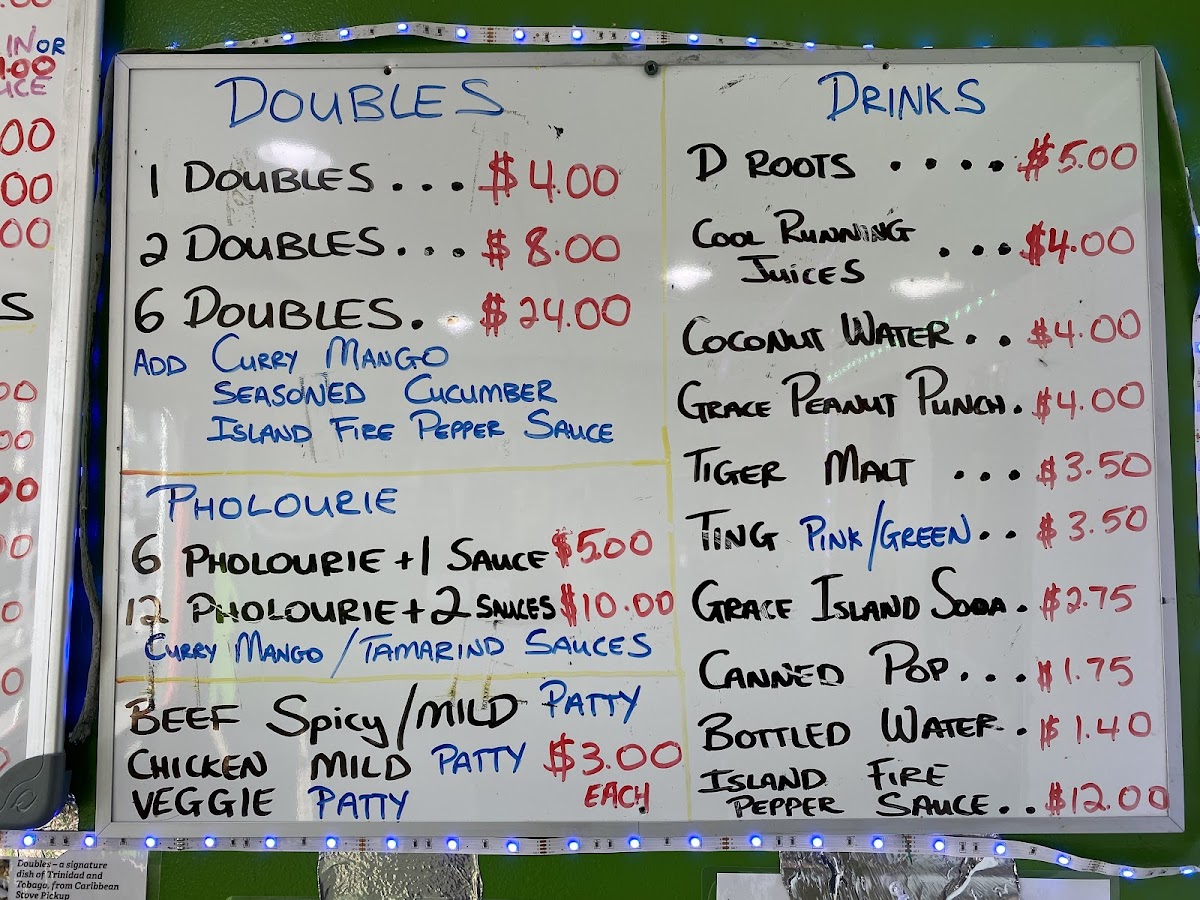 IN OR
1.00
00
00
00
S
00
00
00
0
0
0
DOUBLES
1 DOUBLES... $4.00
2 DOUBLES... $8.00
6 DOUBLES.. $24.00
ADD CURRY MANGO
SEASONED CUCUMBER
ISLAND FIRE PEPPER SAUCE
PHOLOURIE
6 PHOLOURIE +1 SAUCE $5.00
12 PHOLOURIE + 2 SAUCES $10.00
CURRY MANGO / TAMARIND SAUCES
BEEF Spicy/MILD PATTY
CHICKEN MILD PATTY $3.00
VEGGIE PATTY EACH
DRINKS
D ROOTS .... $5.00
COOL RUNNING
JUICES ... $4.00
COCONUT WATER.. $4.00
GRACE PEANUT PUNCH. $4.00
TIGER MALT ... $3.50
TING PINK/GREEN.. $3.50
GRACE ISLAND SODA. $2.75
CANNED POP... $1.75
BOTTLED WATER.. $1.40
ISLAND FIRE
PEPPER SAUCE.. $12.00
Doubles – a signature
dish of Trinidad and
Tobago, from Caribbean
Stove Pickup